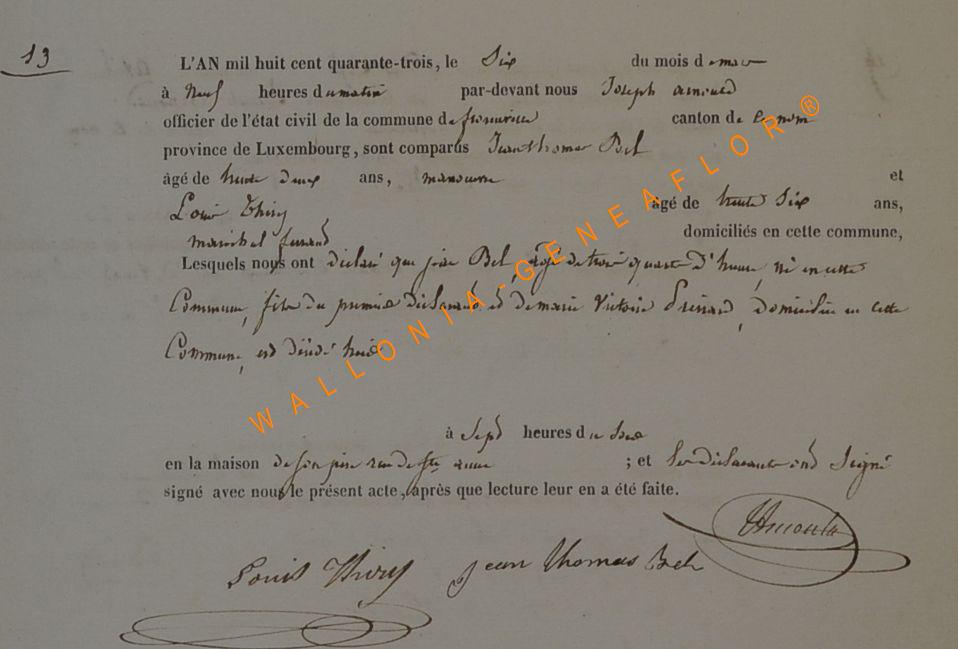 13
L'AN mil huit cent quarante-trois, le Six du mois de mars
à Neuf heures du matin par-devant nous Joseph arnould
officier de l'état civil de la commune de canton de
province de Luxembourg, sont comparus Jean thomas Bch
âgé de trente deux ans, manoeuvre et
Louis Thiry âgé de trente Six ans,
maréchal ferrand domiciliés en cette commune,
Lesquels nous ont déclaré que Bch, âgé de trois quarts d'heure, né en cette
Commune, fils du premier déclarant et de marie Victoire domiciliée en cette
Commune, est décédé hier
à Sept heures du Soir
en la maison de son père rue de Ste anne ; et les déclarants ont Signé
signé avec nous le présent acte, après que lecture leur en a été faite.
Louis Thiry Jean thomas Bch Arnould
WALLONIA-GENEAFLOR®